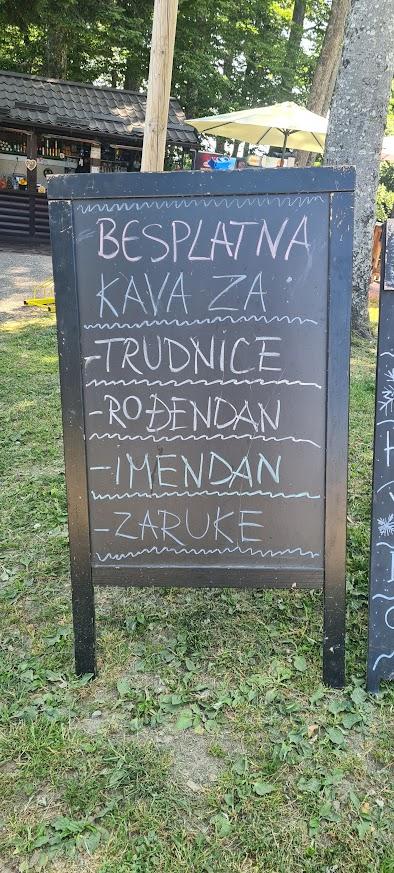 BESPLATNA
KAVA ZA
-TRUDNICE
-ROĐENDAN
-IMENDAN
-ZARUKE